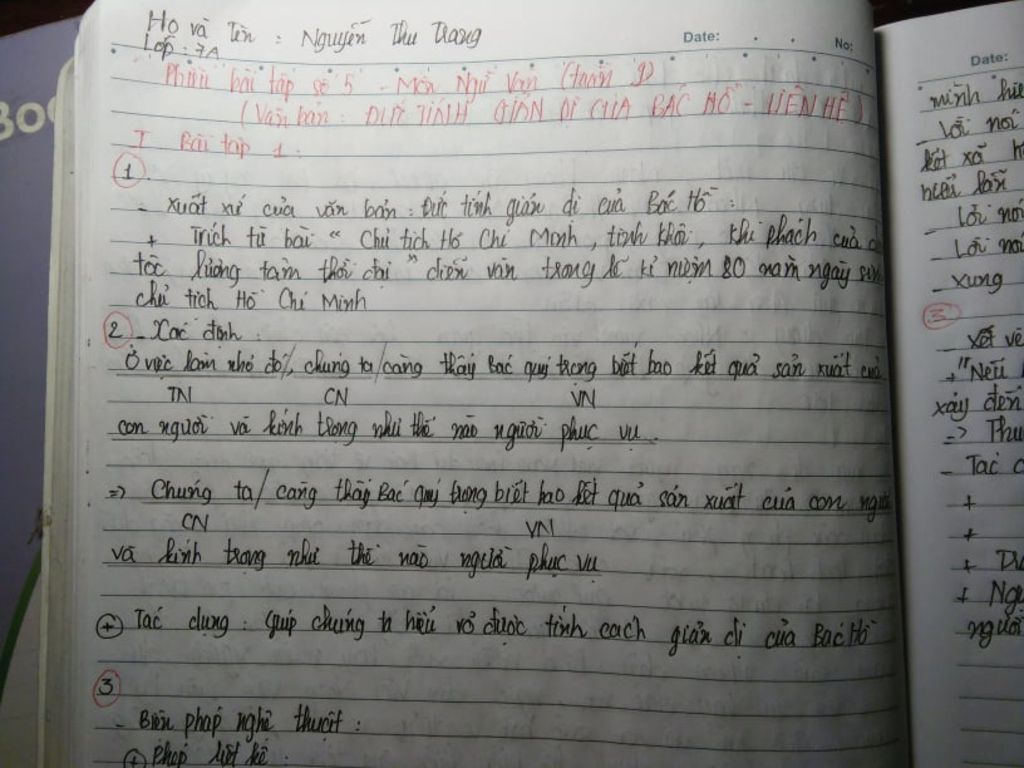 Boo
Họ và Tên : Nguyễn Thu Trang
Lớp : 7A
Date:
No:
Phiếu bài tập số 5 - Môn Ngữ Văn (tuần
(Văn bản : ĐỨC TÍNH GIẢN DỊ CỦA BÁC HỒ - LIÊN HỆ)
I Bài tập 1.
1
- Xuất xứ của văn bản : Đức tính giản dị của Bác Hồ :
+ Trích từ bài " Chủ tịch Hồ Chí Minh, tinh khôi, khí phách của
tộc lương tâm thời đại " diễn văn trong lễ kỉ niệm 80 năm ngày sinh
chủ tịch Hồ Chí Minh
2 - Xác định :
Ở việc làm nhỏ đó/, chúng ta/càng thấy Bác quý trọng biết bao kết quả sản xuất của
TN CN VN
con người và kính trọng như thế nào người phục vụ.
=> Chúng ta/ càng thấy Bác quý trọng biết bao kết quả sản xuất của con người
CN VN
và kính trọng như thế nào người phục vụ
+ Tác dụng : Giúp chúng ta hiểu rõ được tính cách giản dị của Bác Hồ
3
- Biện pháp nghệ thuật :
+ Phép liệt kê :
Date:
minh
- Lối nói
kết xã
- Lối nói
- Lối
- xưng
3
- Xét về
+ "Nếu
xảy đến
=> Thu
- Tác
+
+
+
+ Ngu
người